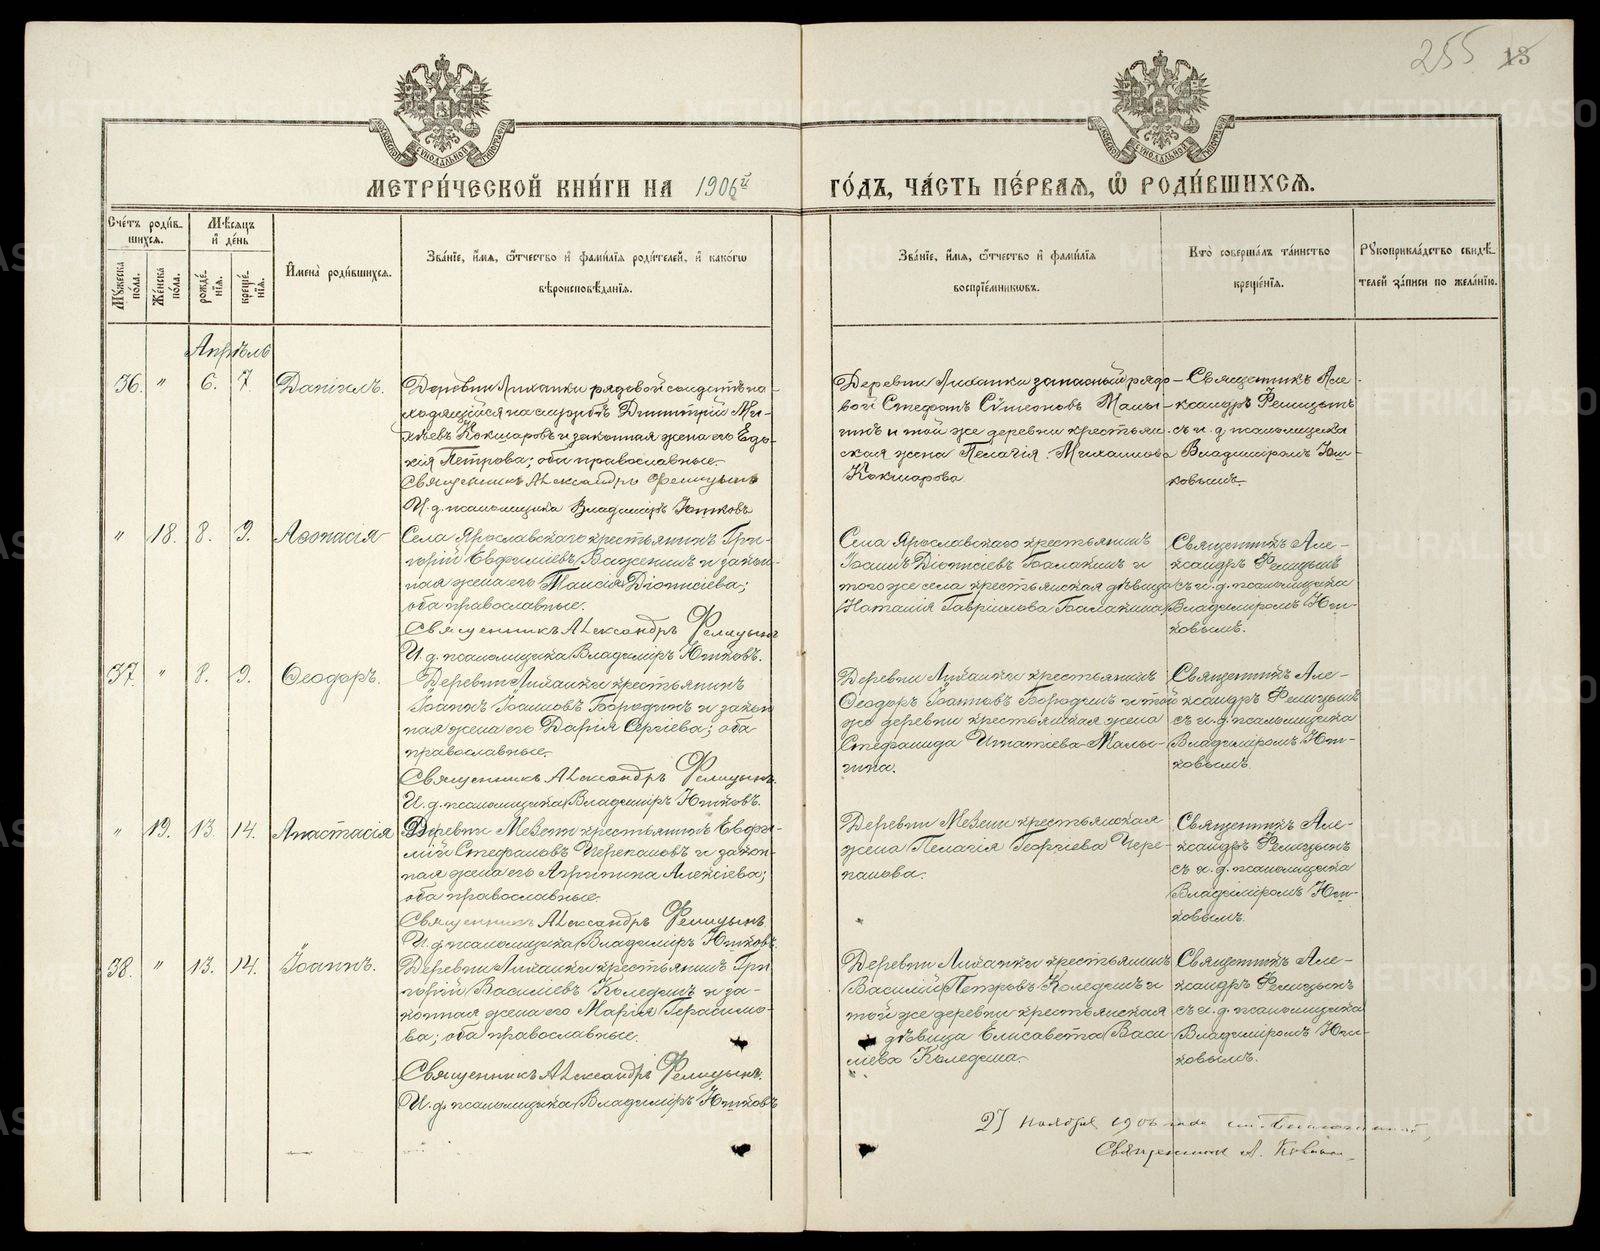 255 13
МЕТРИ́ЧЕСКОЙ КНИ́ГИ НА 1906й ГО́ДЪ, ЧА́СТЬ ПЕ́РВАЯ, Ѿ РОДИ́ВШИХСЯ.
Сче́тъ роди́в-
шихся.
Му́жеска по́ла.
Же́нска по́ла.
Мѣ́сяцъ
и де́нь
рожде́нїя.
креще́нїя.
И́мена роди́вшихся.
Зва́нїе, и́мя, о́тчество и фами́лїя роди́телей, и како́гѡ
вѣроисповѣ́данїя.
Зва́нїе, и́мя, о́тчество и фами́лїя
воспрїе́мниковъ.
Кто̀ соверша́лъ та́инство
креще́нїя.
Рукоприкла́дство свидѣ́-
телей за́писи по жела́нїю.
Апрѣль
36. " 6. 7. Данiилъ.
Деревни Лихачки рядовой солдатъ на-
ходящійся на службѣ Димитрій Ми-
хѣевъ Кокшаровъ и законная жена его Евдо-
кія Петрова; оба православные.
Священникъ Александръ Фелицынъ
И. д. псаломщика Владиміръ Ютковъ
запасный рядо-
вой Стефанъ Сѵмеоновъ Малы-
гинъ и той же деревни крестьян-
ская жена Пелагія Михаилова
Кокшарова
Священникъ Але-
ксандръ Фелицынъ
съ и. д. псаломщика
Владиміромъ Ют-
ковымъ.
" 18. 8. 9. Аѳанасія
Села Ярославскаго крестьянинъ Гри-
горій Евфиміевъ и закон-
ная жена его Таисія Діонисіева;
оба православные.
Священникъ Александръ Фелицынъ
И. д. псаломщика Владиміръ Ютковъ.
Села Ярославскаго крестьянинъ
Іоаннъ Діонисіевъ Балакинъ и
того же села крестьянская дѣвица
Наталія Гавріилова Балакина
Священникъ Але-
ксандръ Фелицынъ
съ и. д. псаломщика
Владиміромъ Ют-
ковымъ.
37. " 8. 9. Ѳеодоръ.
Деревни крестьянинъ
Іоаннъ Іоанновъ Бородинъ и закон
ная жена его Дарія Сергіева; оба
православные.
Священникъ Александръ Фелицынъ.
И. д. псаломщика Владиміръ Ютковъ.
Деревни крестьянинъ
Ѳеодоръ Іоанновъ Бородинъ и той
же деревни крестьянская жена
Стефанида Игнатіева Малы-
гина.
Священникъ Але-
ксандръ Фелицынъ
съ и. д. псаломщика
Владиміромъ Ют-
ковымъ.
" 19. 13. 14. Анастасія
Деревни Мезени крестьянинъ Евфи-
мій Стефановъ Черепановъ и закон-
ная жена его Агрипина Алексіева;
оба православные.
Священникъ Александръ Фелицынъ
И. д. псаломщика Владиміръ Ютковъ
Деревни Мезени крестьянская
жена Пелагія Георгіева Чере-
панова.
Священникъ Але-
ксандръ Фелицынъ
съ и. д. псаломщика
Владиміромъ Ют-
ковымъ.
38. " 13. 14. Іоаннъ.
Деревни крестьянинъ Гри
горій Василіевъ и за-
конная жена его Марія Герасимо-
ва; оба православные.
Священникъ Александръ Фелицынъ.
И. д. псаломщика Владиміръ Ютковъ
Деревни крестьянинъ
Василій Петровъ и
той же деревни крестьянская
дѣвица Елисавета Васи-
лiева
Священникъ Але-
ксандръ Фелицынъ
съ и. д. псаломщика
Владиміромъ Ют-
ковымъ.
27 ноября 1906 года
Священникъ А.
METRIKI.GASO-URAL.RU